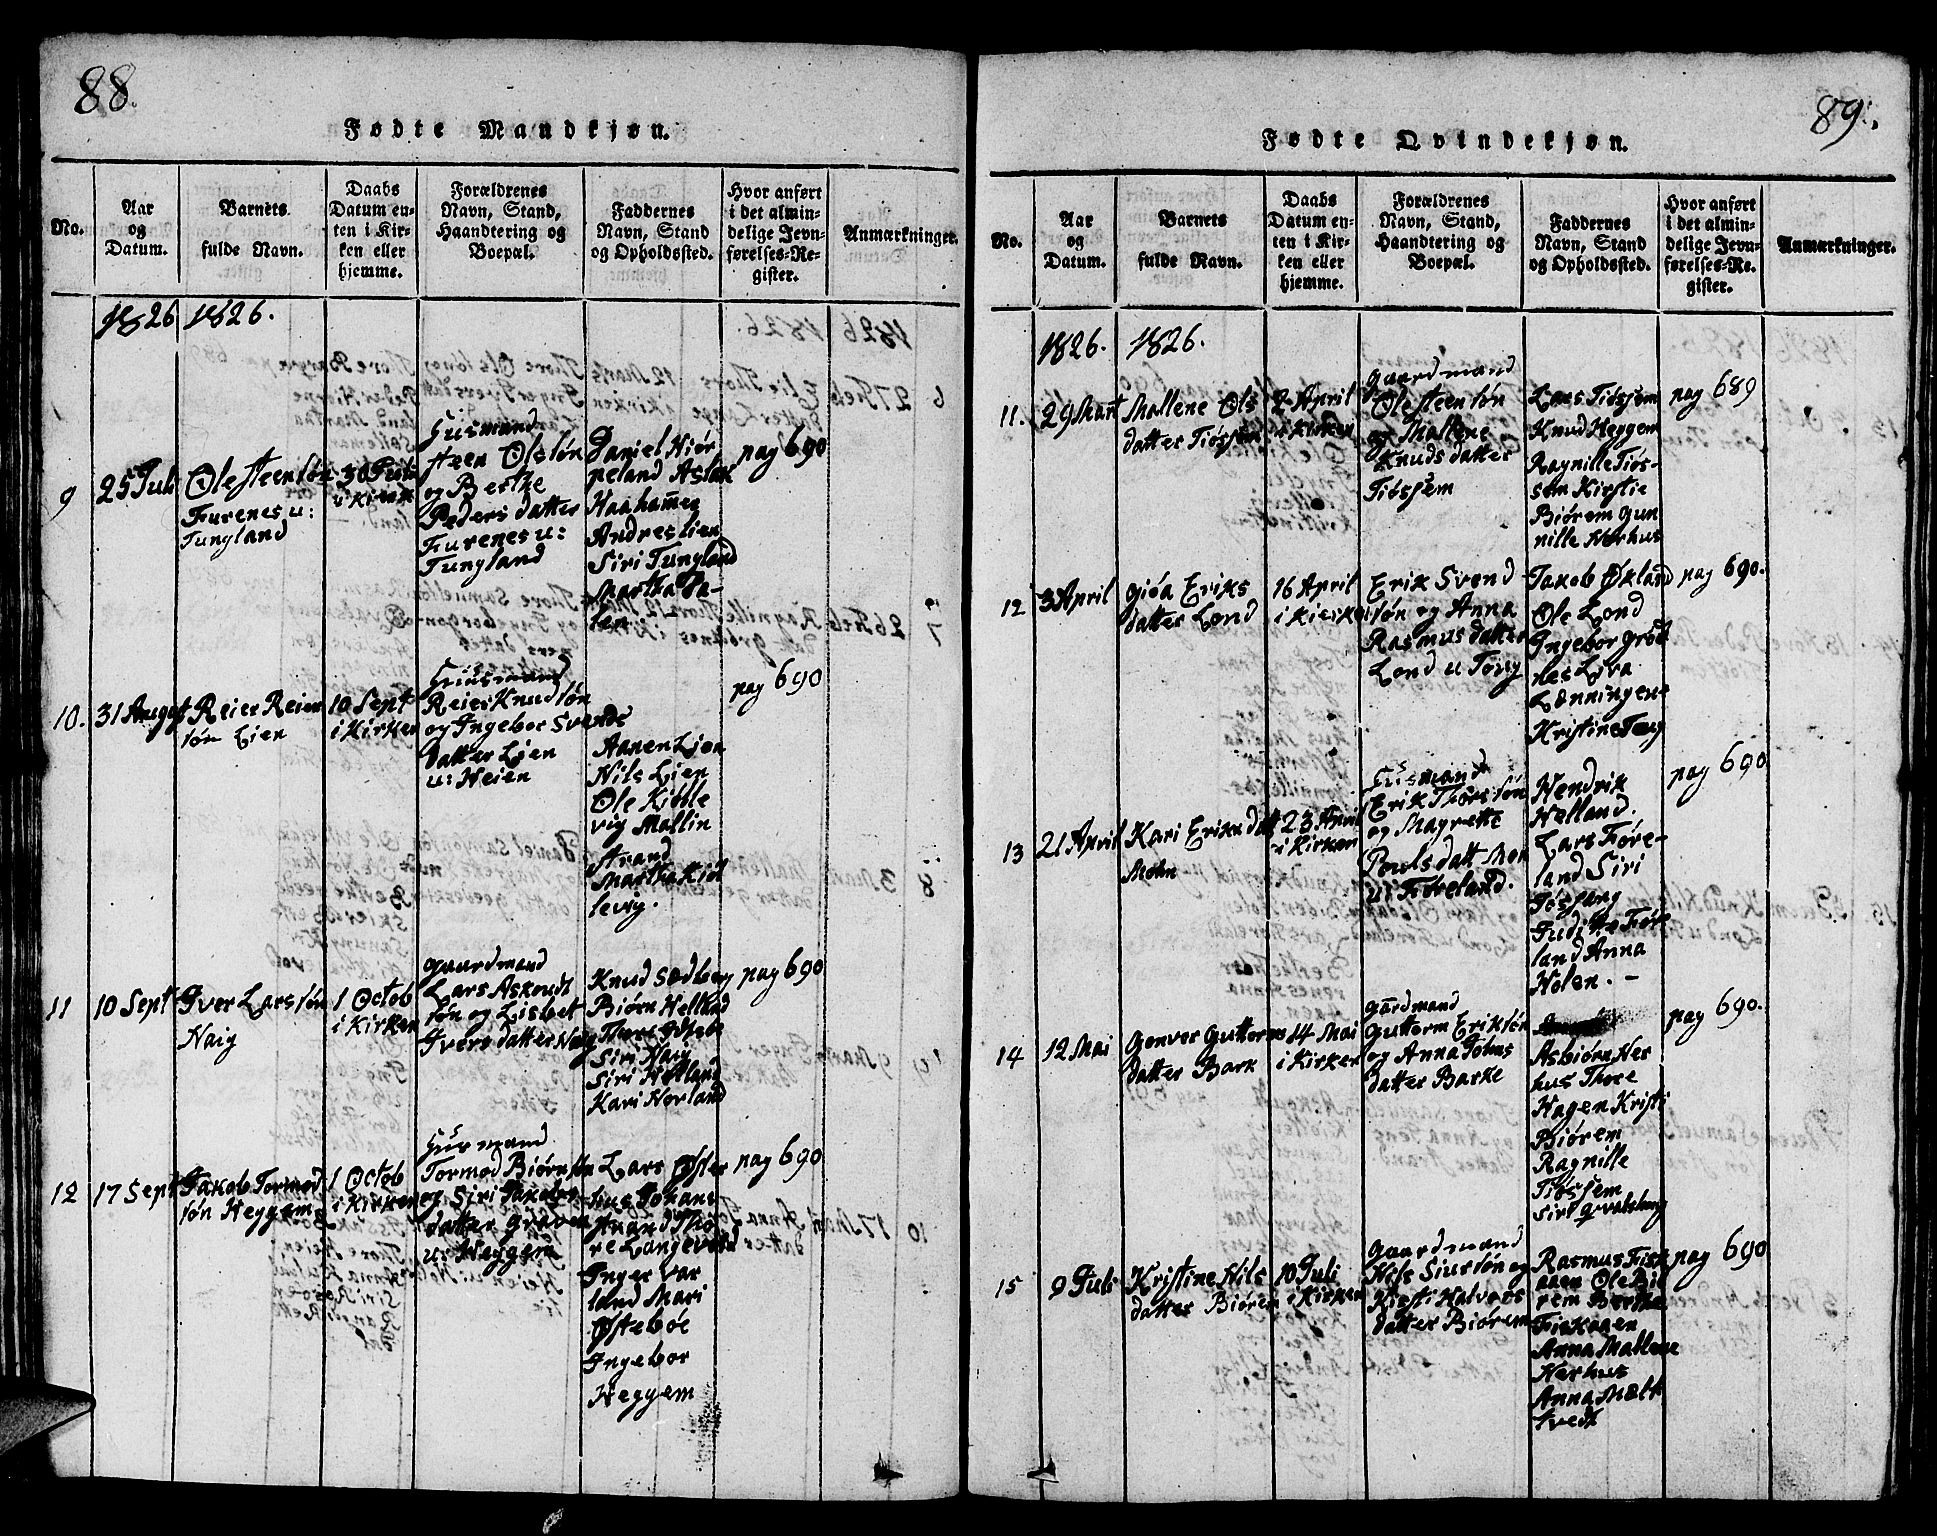 88.
Fødte Mandkjøn.
No.
Aar
og
Datum.
Barnets
fulde Navn.
Daabs
Datum en-
ten i Kir-
ken eller
hjemme.
Forældrenes
Navn, Stand,
Haandtering og
Boepæl.
Faddernes
Navn, Stand
og Opholdssted.
Hvor anført
i det almin-
delige Jevn-
førelses-Re-
gister.
Anmærkninger.
1826 1826.
9
25 Juli
Ole Steensøn
Furenes u:
Tungland
30 Juli
i Kirken
Huusmand
Steen Olsøn
og Berthe
Peders datter
Furenes u:
Tungland
Daniel Hiør
peland Aslak
Haahammer
Andres Lien
Siri Tungland
Martha Da-
len. -
pag 690
10.
31 August
Reier Reier
søn Lien
10 Sept
i Kirken
Huusmand
Reier Knudsøn
og Ingebor Svends
datter Lien
u: Heien
Aanen Lien
Nils Lien
Ole Kiødle
vig Mallin
Strand
Martha Kiød
levig.
pag 690
11
10 Sept
Iver Larssøn
Haig
1 Octob
i Kirken
Gaardmand
Lars Askoudt
søn og Lisbet
Ivers datter Haig
Knud Sødberg
Biørn Helland
Thore Østebø
Siri Haig
Siri Helland
Kari Norland
pag 690
12
17 Sept
Jakob Tormod
søn Heggem
1 Octob
i Kirken
Huusmand
Tormod Biørnsøn
og Siri Jakobs
datter Graven
u: Heggem
Lars Øster
hus Johans
Strand Tho
re Langeveld
Inger Var
land Mari
Østebøe
Ingebor
Heggem
pag 690
89.
Fødte Qvindekjøn.
No.
Aar
og
Datum.
Barnets
fulde Navn.
Daabs
Datum en-
ten i Kir-
ken eller
hjemme.
Forældrenes
Navn, Stand,
Haandtering og
Boepæl.
Faddernes
Navn, Stand
og Opholdssted.
Hvor anført
i det almin-
delige Jevn-
førelses-Re-
gister.
Anmærkninger.
1826. 1826.
11.
29 Mart
Mallene Ols
datter Tiøssem
2 April
i Kirken
Gaardmand
Ole Steensøn
og Mallene
Knuds datter
Tiøssem
Lars Tiøssem
Knud Heggem
Ragnille Tiøs-
sem Kirstie
Biørem Gun
nille Nerhus
pag 689
12
3 April
Giøa Eriks
datter Lond
16 April
i Kierken
Erik Svend
søn og Anna
Rasmus datter
Lond u Tong
Jakob Økland
Ole Lond
Ingebor Grød
nes Liva
Lønningene
Kristine Tong
pag 690.
13
21 April
Kari Eriks datt
Mohn
23 April
i Kirken
Huusmand
Erik Thorssøn
og Magrette
Poulsdatt Mon
u: Føreland.
Hendrik
Helland.
Lars Føre-
land Siri
Fossang
Judithe Før
land Anna
Holen. -
pag 690
14
12 Mai
Gonver Guttorms
datter Bark
14 Mai
i Kirken
Gardmand
Guttorm Eriksøn
og Anna Johns
datter Barke
Asbiørn Ner
hus Thore
Hagen Kristi
Biørem
Ragnille
Tiøssem
Siri Qvalvaag
pag 690.
15
9 Juli
Kristine Nils
datter Biørem
10 Juli
i Kirken
Gaardmand
Nils Siursøn og
Kirsti Halvors
datter Biørem
Rasmus Fisk
aaen Ole Biø
rem Berthe
Fiskaaen
Anna Mallene
Nerhus
Anna Mælt
tvedt
pag 690